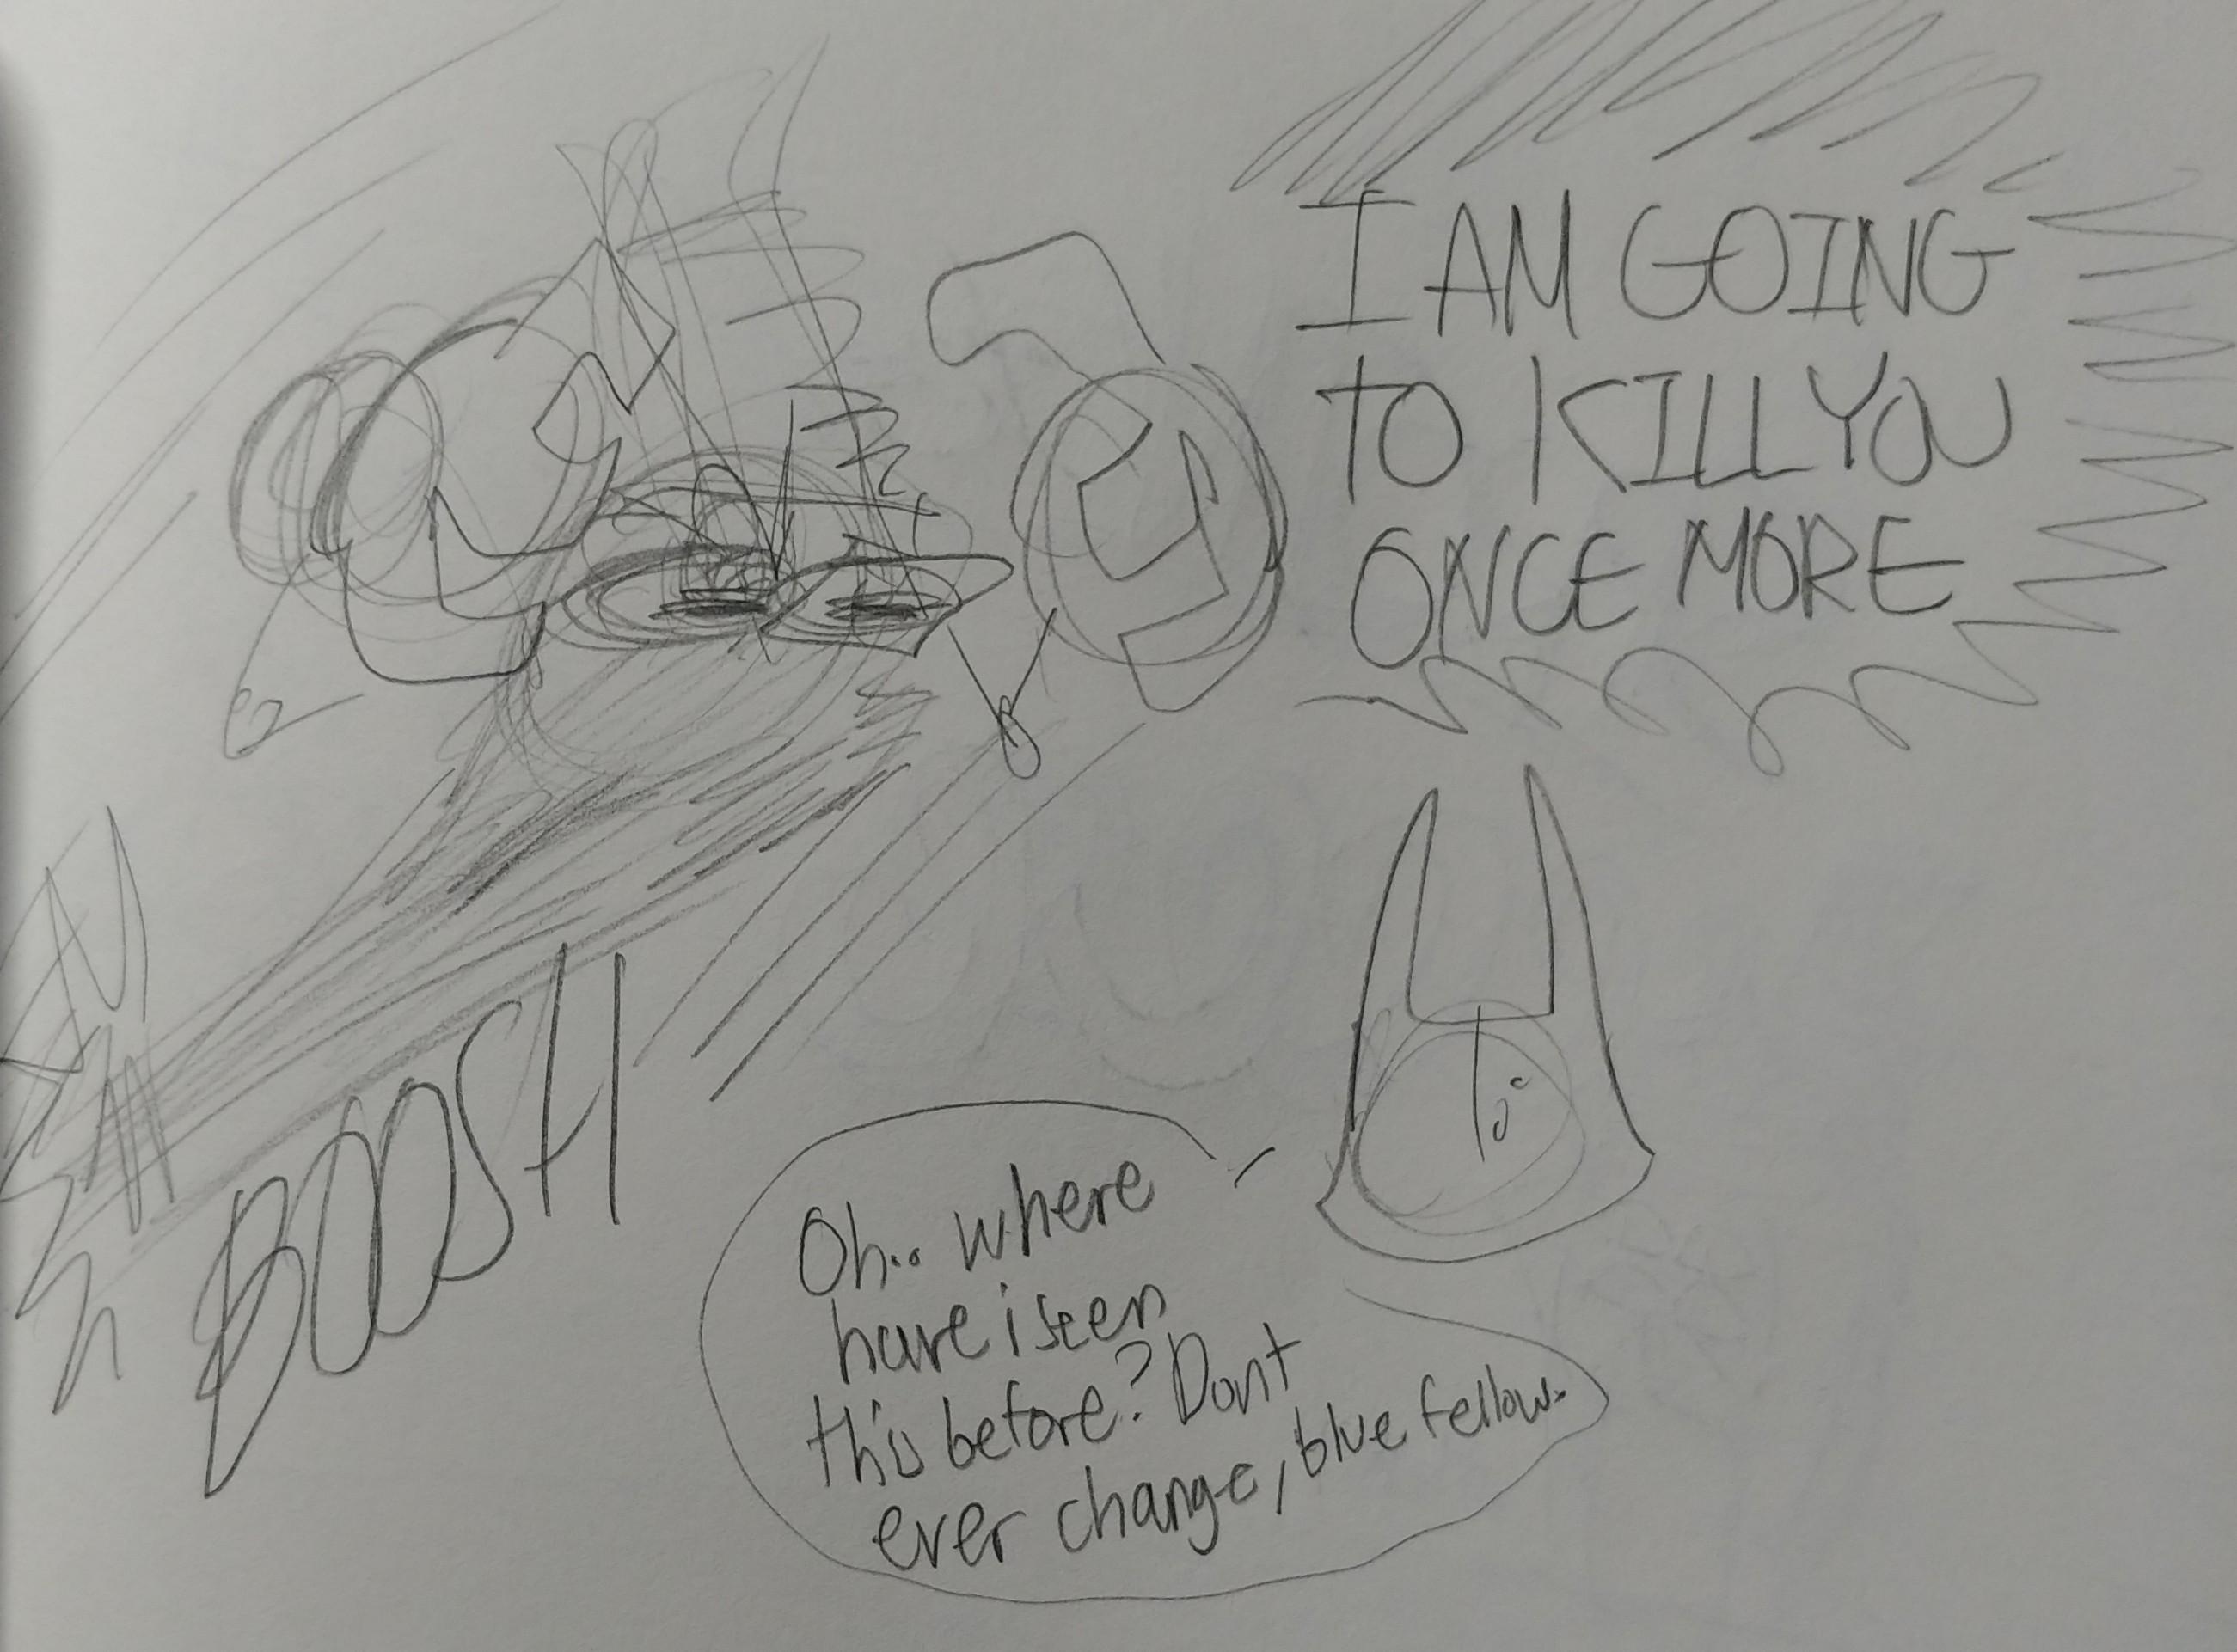 I AM GOING
TO KILL YOU
ONCE MORE
BOOSH
Oh.. where
have i seen
this before? Dont
ever change, blue fellow.